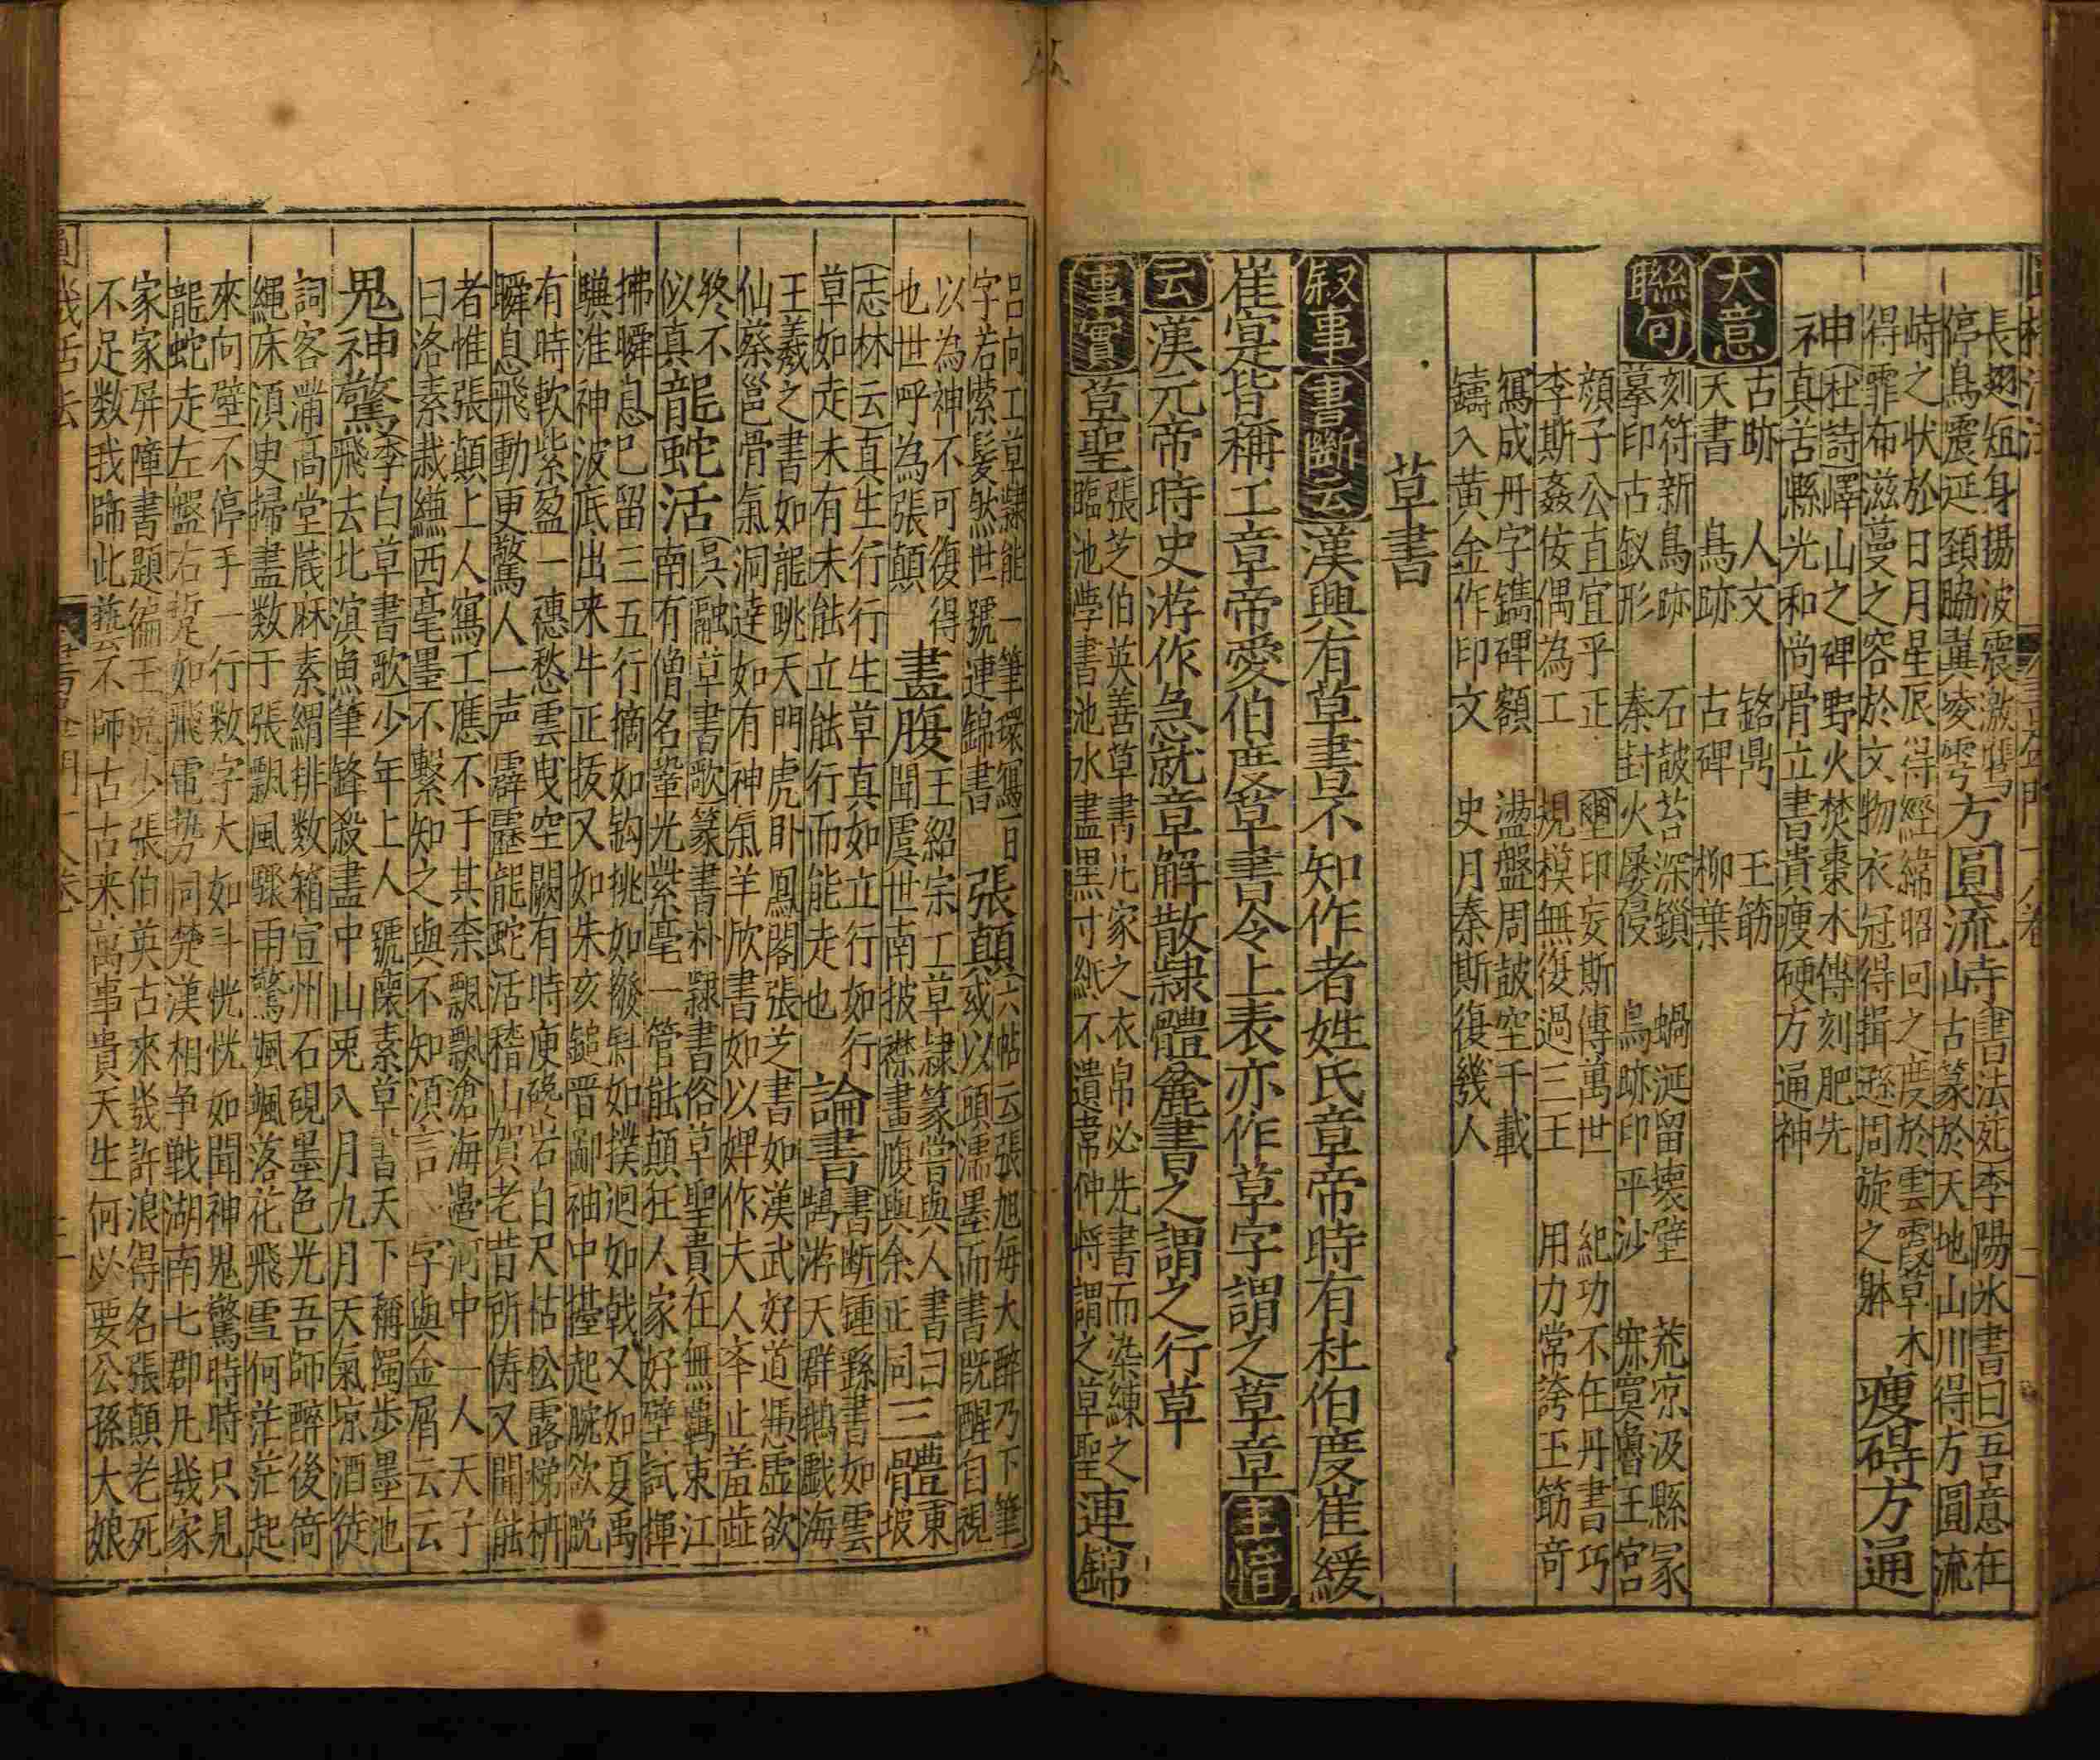 長翅短身揚波震激鷹
停鳥震延頸脇翼凌雩
方圓流峙
書法苑李陽氷書曰吾意在
古篆於天地山川得方圓流
峙之状於日月星辰得經緯昭回之度於雲霞草木
得霏布滋蔓之容於文物衣冠得揖遜周旋之躰
瘦硬方通
神
杜詩嶧山之碑野火焚棗木傳刻肥先
真苦縣光和尚骨立書貴瘦硬方通神
大意
古跡 人文 銘鼎 玉筯
天書 鳥跡 古碑 柳葉
聯句
刻符新鳥跡 石皷苔深鎖 蝸涎留壞壁 荒凉汲縣冢
摹印古釵形 秦封火屡侵 鳥跡印平沙 寞魯王宫
顔子公直宜乎正 印妄斯傳萬世 紀功不在丹書巧
李斯姦侫偶為工 規模無復過三王 用力常誇玉筯竒
寫成丹字鐫碑額 盪盤周皷空千載
鑄入黄金作印文 史月秦斯復幾人
草書
叙事 書斷云 漢興有草書不知作者姓氏章帝時有杜伯度崔緩
崔寔皆稱工章帝愛伯度草書令上表亦作草字謂之草章 王愔
云 漢元帝時史游作急就章解散隷體麄書之謂之行草
事實 草聖
張芝伯英善草書凢家之衣帛必先書而染練之
臨池學書池水盡黒寸紙不遺韋仲将謂之草聖
連錦
吕向工草隸能一筆環寫百
字若縈髮然世號連錦書
張顛
六帖云張旭每大醉乃下筆
或以頭濡墨而書既醒自視
以為神不可復得
也世呼為張顛
畫腹
王紹宗工草隷篆嘗與人書曰
聞虞世南披襟畫腹與余正同
三體
東坡
志林云真生行行生草真如立行如行
草如走未有未能立能行而能走也
論書
書断鍾繇書如雲
鵠游天群鵠戯海
王羲之書如龍跳天門虎臥鳳閣張芝書如漢武好道慿虚欲
仙蔡邕骨氣洞達如有神氣羊欣書如以婢作夫人夲止羞澁
終不
似真
龍蛇活
吳融草書歌篆書朴隸書俗草聖貴在無羈束江
南有僧名鞏光紫毫一管能顛狂人家好壁試揮
拂瞬息已留三五行摘如鈎挑如撥斜如撲迴如戟又如夏禹
䮫淮神波底出来牛正扳又如朱亥鎚晋鄙袖中擡起腕欲脱
有時軟縈盈一穗愁雲曳空闕有時庾硗岩白尺怙松露梯枿
瞬息飛動更驚人一声霹靂能蛇活稽山賀老昔所俦又聞能
者惟張顛上人寫工應不于其柰飄飄滄海邉河中一人天子
曰洛素裁縑西毫墨不繫知之與不知湏言一字與金屑云云
鬼神驚
李白草書歌少年上人號懷素草書天下稱獨步墨池
飛去北溟魚筆鋒殺盡中山兎八月九月天氣凉酒徒
詞客滿高堂牋麻素綃排数箱宣州石硯墨色光吾師醉後倚
繩床湏臾掃盡数于張飄風驟雨驚颯颯落花飛雪何茫茫起
來向壁不停手一行数字大如斗恍恍如聞神鬼驚時時只見
龍蛇走左盤右蹔如飛電勢同楚漢相争戦湖南七郡凢幾家
家家屏障書題徧王逸少張伯英古來幾許浪得名張顛老死
不足数我師此義不師古古来萬事貴天生何必要公孫大娘